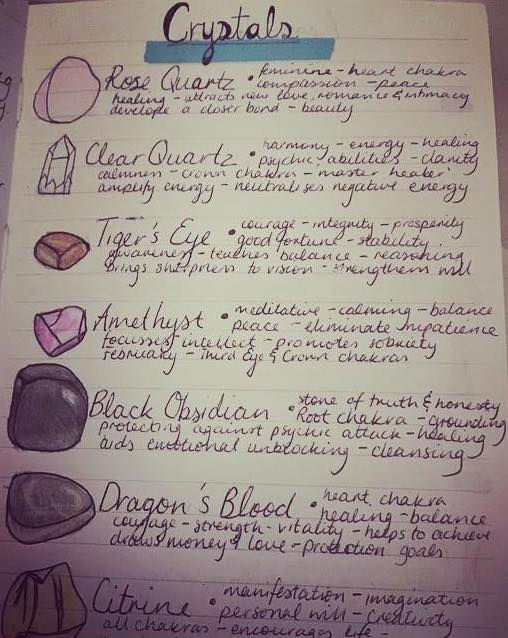 Crystals
Rose Quartz • feminine - heart chakra
compassion - peace
healing - attracts new love, romance & intimacy
develope a closer bond - beauty
Clear Quartz • harmony - energy - healing
psychic abilities - clarity
calmness - crown chakra - master healer
amplify energy - neutralises negative energy
Tiger's Eye • courage - integrity - prosperity
good fortune - stability
awareness - teaches balance - reasoning
brings sharpness to vision - strengthens will
Amethyst • meditative - calming - balance
peace - eliminate impatience
focusses intellect - promotes sobriety
february - Third Eye & Crown chakras
Black Obsidian • stone of truth & honesty
Root chakra - grounding
protecting against psychic attack - healing
aids emotional unblocking - cleansing
Dragon's Blood • heart chakra
healing - balance
courage - strength - vitality - helps to achieve
draws money & love - protection goals
Citrine • manifestation - imagination
personal will - creativity
all chakras - encourages life -